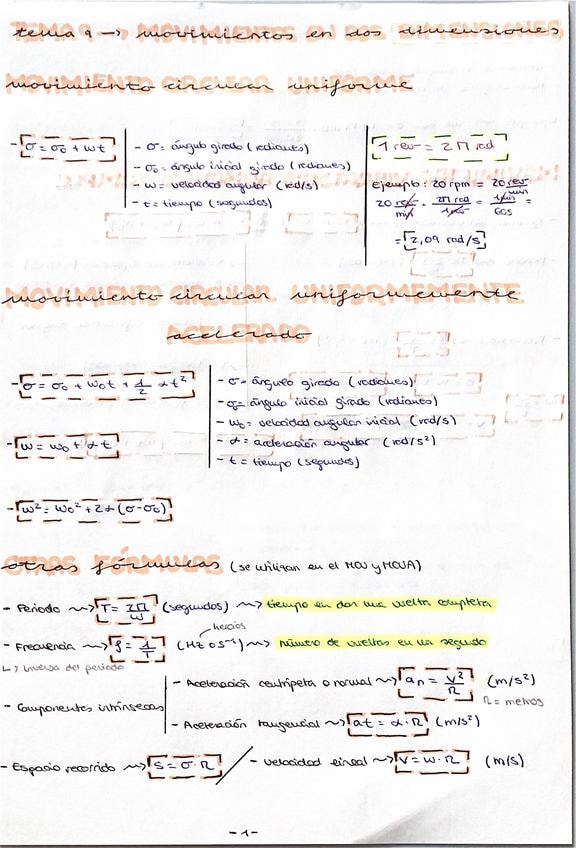 tema 9 → movimientos en dos dimensiones
movimiento circular uniforme
- σ = σ₀ + ωt
- σ = ángulo girado (radianes)
- σ₀ = ángulo inicial girado (radianes)
- ω = velocidad angular (rad/s)
- t = tiempo (segundos)
1 rev = 2π rad
Ejemplo: 20 rpm = 20 rev/min
20 rev/min · 2π rad/1 rev = 1 min/60s =
= 2,09 rad/s
movimiento circular uniformemente
acelerado
- σ = σ₀ + ω₀t + 1/2 αt²
- ω = ω₀ + αt
- ω² = ω₀² + 2α(σ-σ₀)
- σ = ángulo girado (radianes)
- σ₀ = ángulo inicial girado (radianes)
- ω₀ = velocidad angular inicial (rad/s)
- α = aceleración angular (rad/s²)
- t = tiempo (segundos)
otras fórmulas (se utilizan en el MCU y MCUA)
- Periodo ~> T = 2π/ω (segundos) ~> tiempo en dar una vuelta completa
hercios
- Frecuencia ~> f = 1/T (Hz o s⁻¹) ~> número de vueltas en un segundo
↳ inversa del periodo
- Componentes intrínsecas
- Aceleración centrípeta o normal ~> an = v²/R (m/s²)
R = metros
- Aceleración tangencial ~> at = α · R (m/s²)
- Espacio recorrido ~> s = σ · R / - velocidad lineal ~> v = ω · R (m/s)
-1-